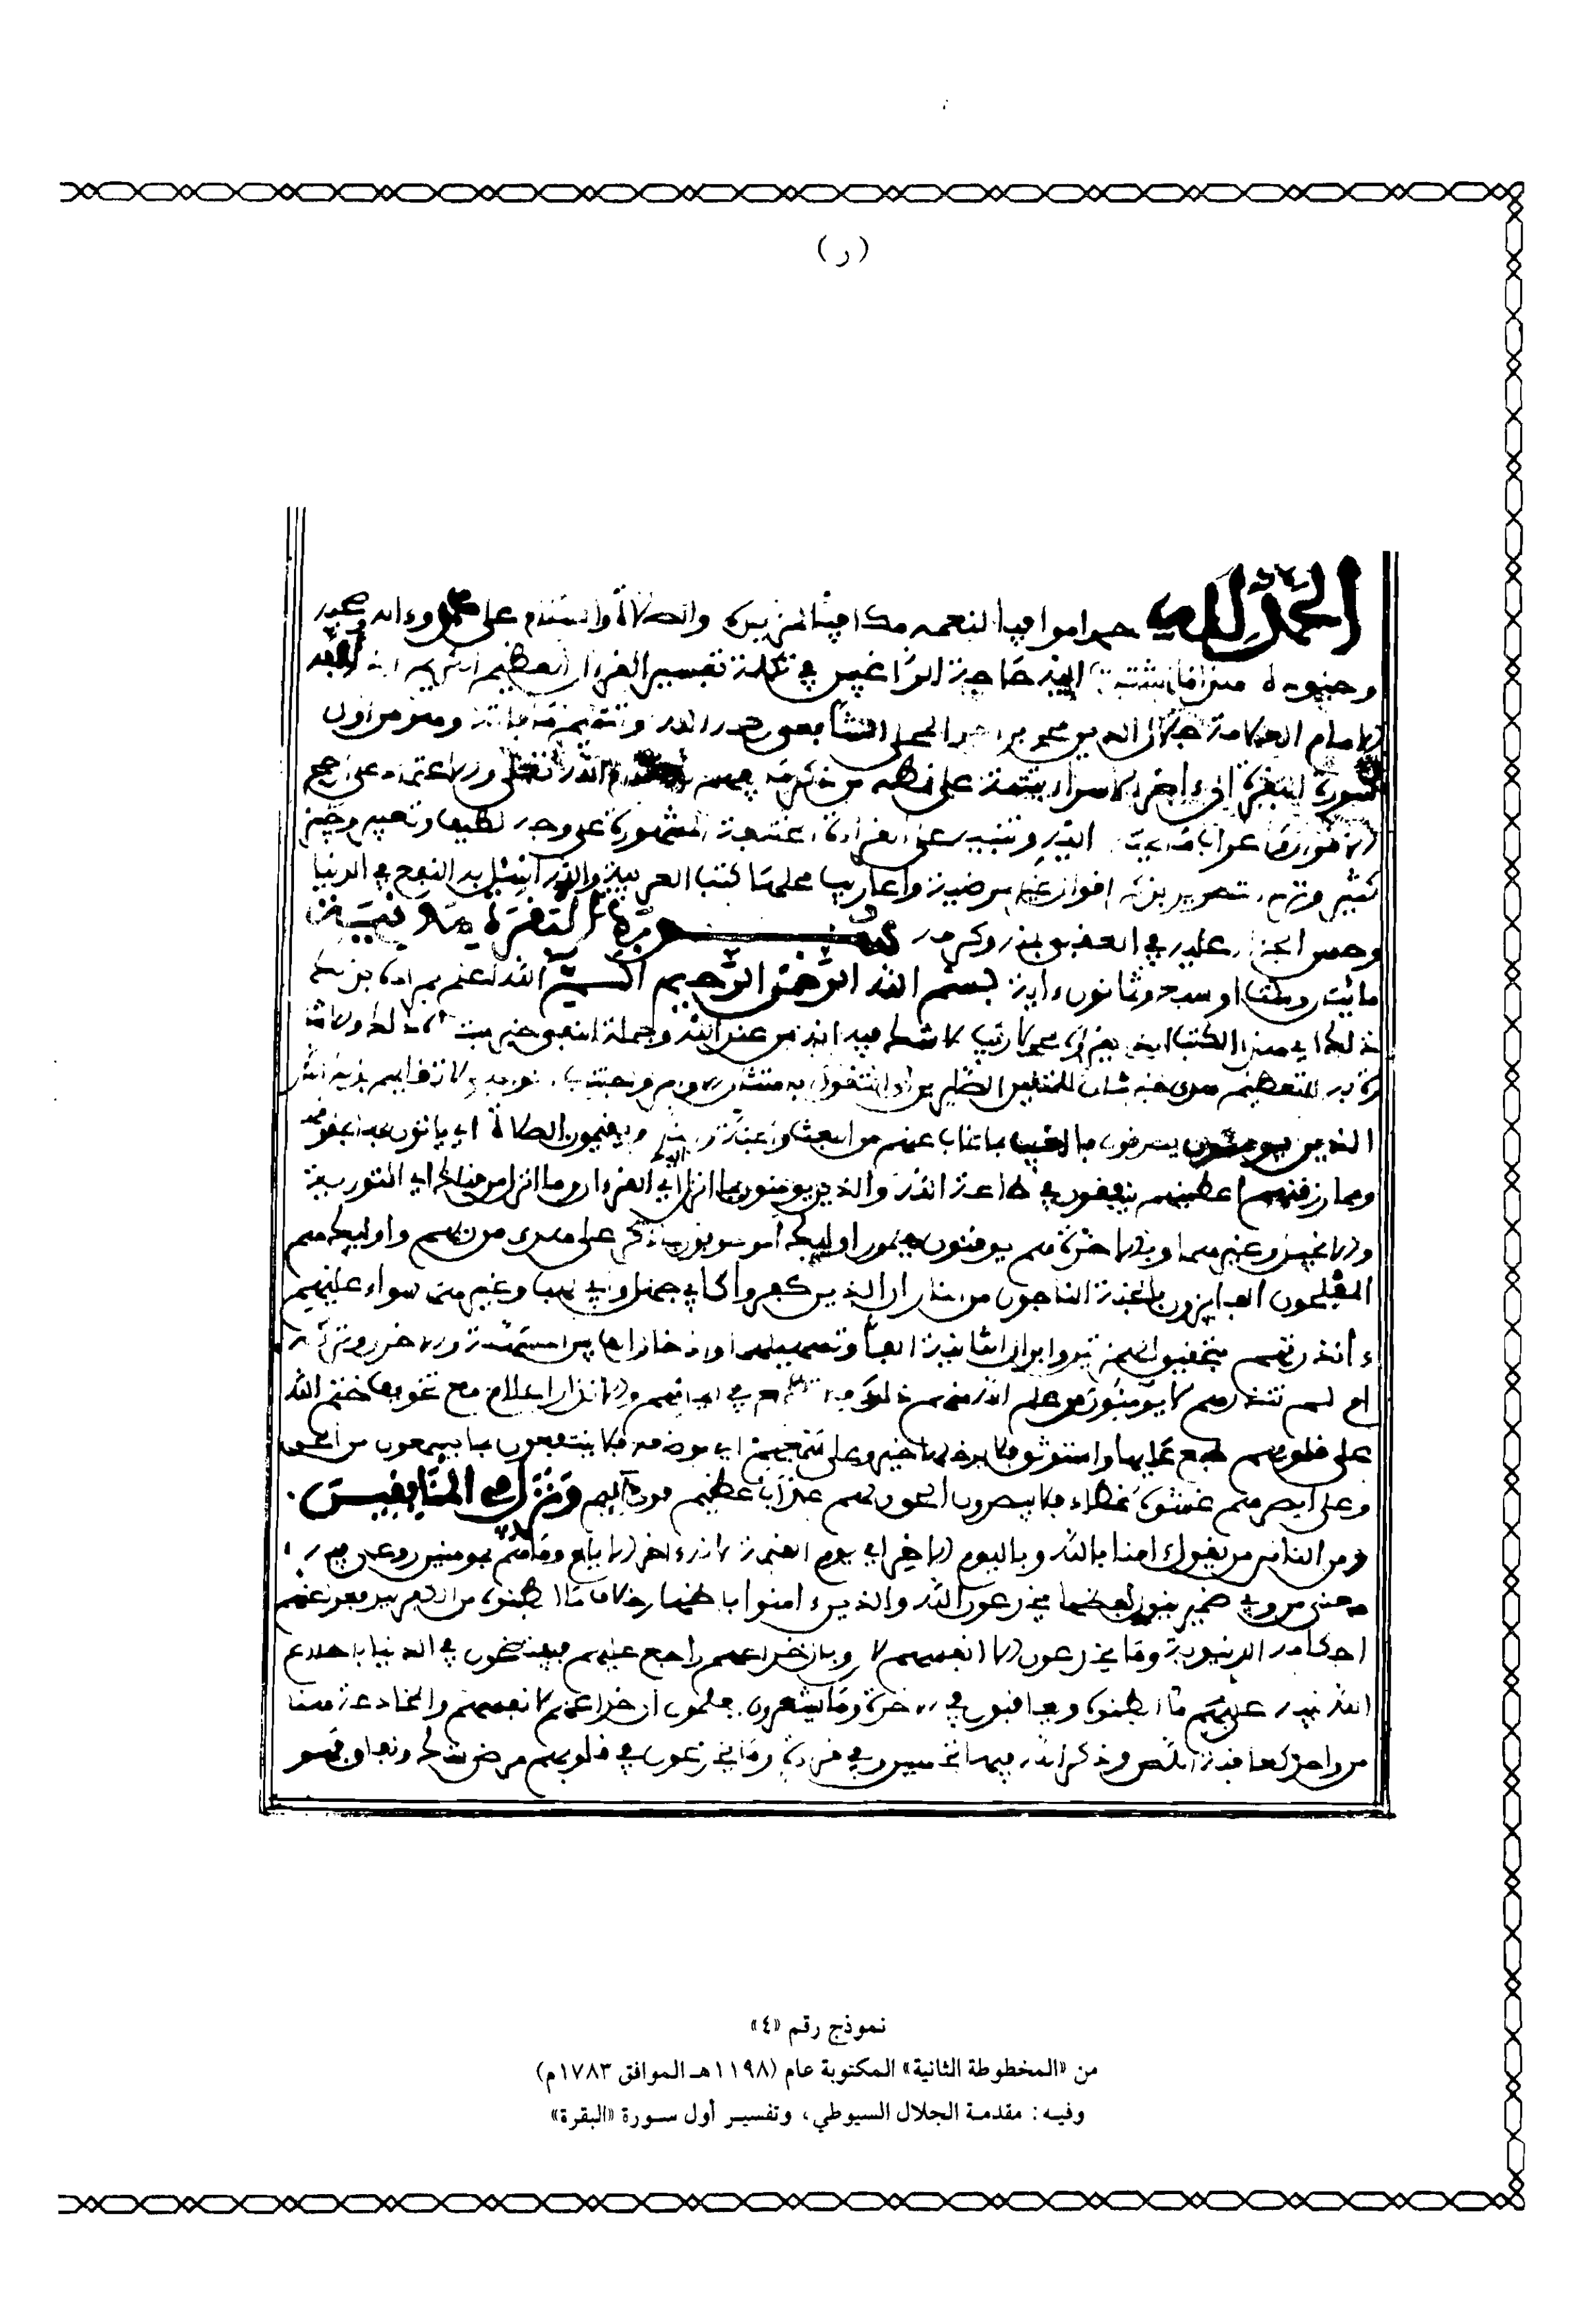 (ر)
الحمد لله حمدا موافيا لنعمه مكافيا لمزيده والصلاة والسلام على محمد وءاله وصحبه
وجنوده هذا ما اشتدت اليه حاجة الراغبين في تكملة تفسير القرءان العظيم الذي الفه
الامام العلامة جلال الدين محمد بن احمد المحلي الشافعي رحمه الله وتتميم ما فاته وهو من اول
سورة البقرة الى ءاخر الاسراء بتتمة على نمطه من ذكر ما يفهم به كلام الله تعلى والاعتماد على ارجح
الاقوال واعراب ما يحتاج اليه وتنبيه على القراءة المختلفة المشهورة على وجه لطيف وتعبير وجيز
وترك تطويل بذكر اقوال غير مرضية واعاريب محلها كتب العربية والله اسئل به النفع في الدنيا
وحسن الجزاء عليه في العقبى بمنه وكرمه سورة البقرة مدنية
مائتان وست او سبع وثمانون ءاية بسم الله الرحمن الرحيم الم الله اعلم بمراده بذلك
ذلك اي هذا الكتب الذي يقرؤه محمد لا ريب لا شك فيه انه من عند الله وجملة النفي خبر مبتدأه ذلك والاشارة
به للتعظيم هدى خبر ثان للمتقين الصائرين الى التقوى بامتثال الاوامر واجتناب النواهي لاتقائهم بذلك النار
الذين يومنون يصدقون بالغيب بما غاب عنهم من البعث والجنة والنار ويقيمون الصلاة اي ياتون بها بحقوقها
ومما رزقنهم اعطينهم ينفقون في طاعة الله والذين يومنون بما انزل اليك اي القرءان وما انزل من قبلك اي التورية
والانجيل وغيرهما وبالاخرة هم يوقنون يعلمون اوليك الموصوفون بما ذكر على هدى من ربهم واوليك هم
المفلحون الفايزون بالجنة الناجون من النار ان الذين كفروا كابي جهل وابي لهب وغيرهما سواء عليهم
ءأنذرتهم بتحقيق الهمزتين وابدال الثانية الفا وتسهيلها وادخال الف بين المسهلة والاخرى وتركه
ام لم تنذرهم لا يومنون لعلم الله منهم ذلك فلا تطمع في ايمانهم والانذار اعلام مع تخويف ختم الله
على قلوبهم طبع عليها واستوثق فلا يدخلها خير وعلى سمعهم اي مواضعه فلا ينتفعون بما يسمعون من الحق
وعلى ابصرهم غشوة غطاء فلا يبصرون الحق ولهم عذاب عظيم قوي دايم ونزل في المنافقين
ومن الناس من يقول امنا بالله وباليوم الاخر اي يوم القيمة لانه ءاخر الايام وما هم بمومنين روعي فيه
معنى من وفي ضمير يقول لفظها يخدعون الله والذين ءامنوا باظهار خلاف ما ابطنوه من الكفر ليدفعوا عنهم
احكامه الدنيوية وما يخدعون الا انفسهم لان وبال خداعهم راجع عليهم فيفتضحون في الدنيا باطلاع
الله نبيه عليهم ما ابطنوه ويعاقبون في الاخرة وما يشعرون يعلمون ان خداعهم لانفسهم والمخادعة هنا
من واحد كعاقبت اللص وذكر الله فيها تحسين وفي قراءة وما يخدعون في قلوبهم مرض شك ونفاق فهو
نموذج رقم «٤»
من «المخطوطة الثانية» المكتوبة عام (١١٩٨هـ الموافق ١٧٨٣م)
وفيه: مقدمة الجلال السيوطي، وتفسير أول سورة «البقرة»